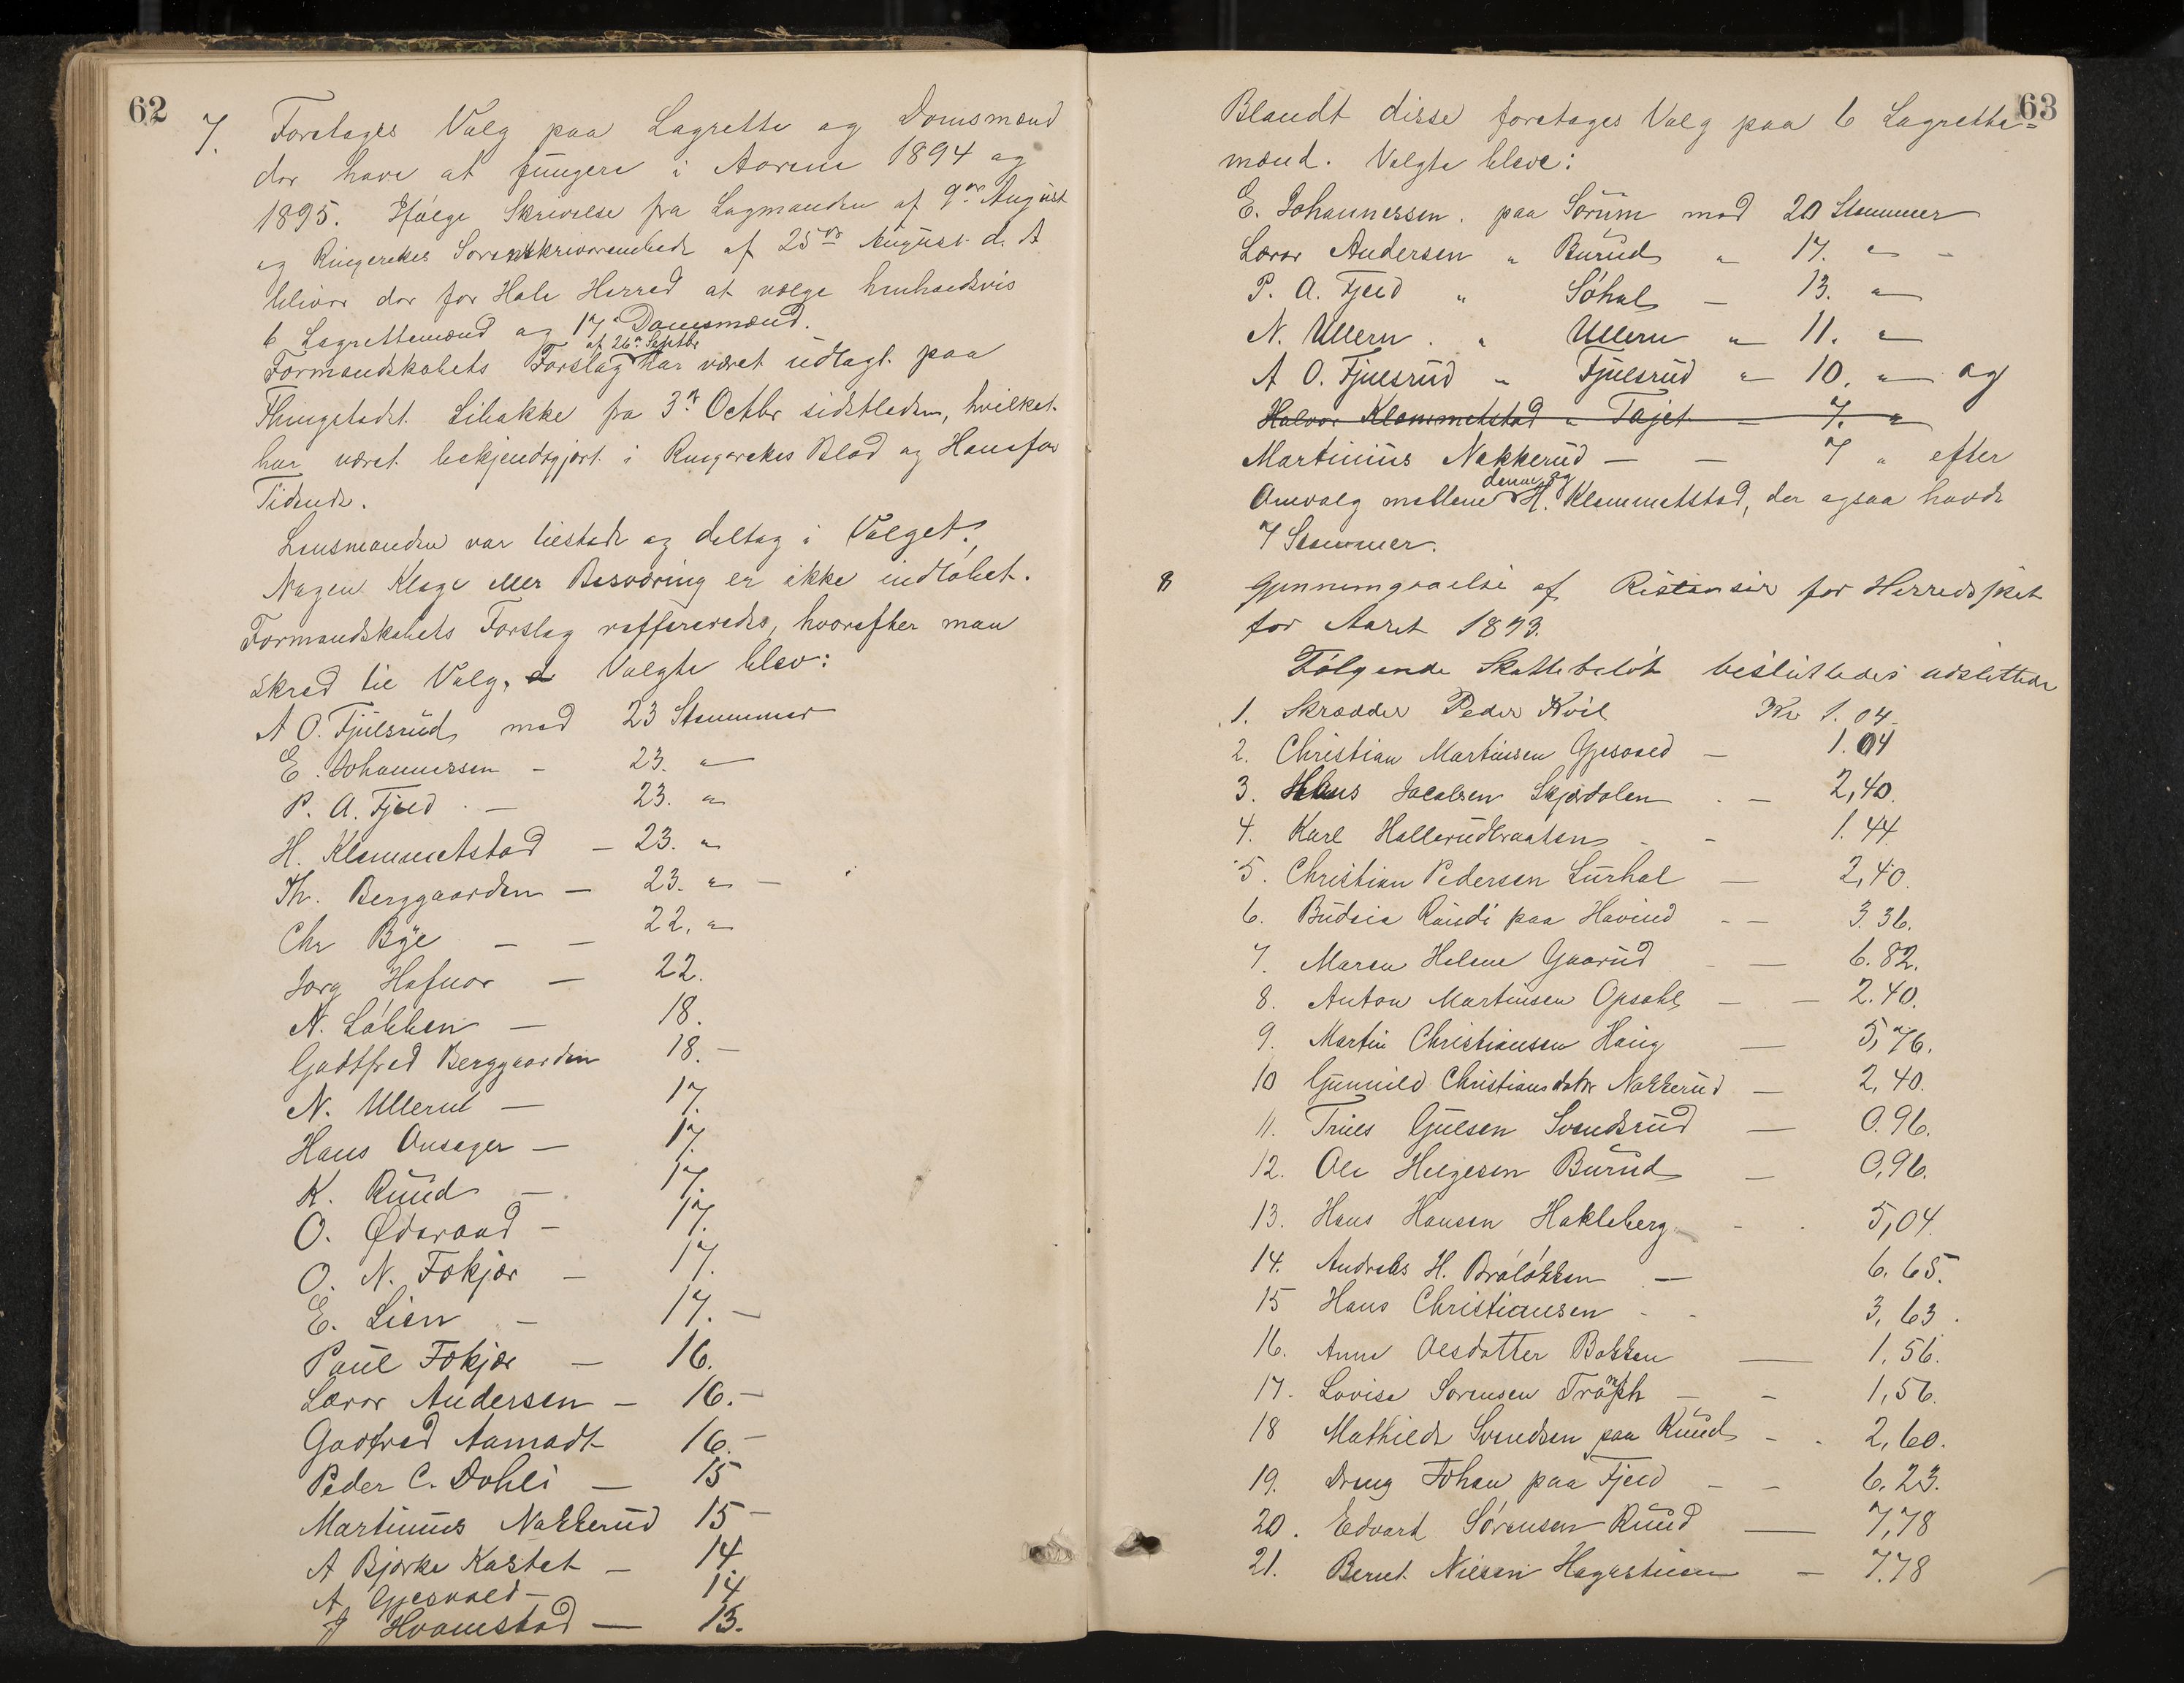 62
7. Foretages Valg paa Lagrette og Domsmænd
der have at fungere i Aarene 1894 og
1895. Ifølge Skrivelse fra Lagmanden af 9de August
og Ringerekes Sorenskriverembede af 25de August d. A
bliver der for Hole Herred at vælge henholdsvis
6 Lagrettemænd og 17 Domsmænd.
Formandskabets Forslag af 26de Septbr har været udlagt paa
Thingstedet Libakke fra 3de Octbr sidstleden, hvilket
har været bekjendtgjort i Ringerekes Blad og Hønefos
Tidende.
Lensmanden var tilstede og deltog i Valget.
Nogen Klage eller Besværing er ikke indløbet.
Formandskabets Forslag refereredes, hvorefter man
skred til Valg. Valgte blev:
A O. Fjulsrud med 23 Stemmer
E. Johannessen - 23. "
P. A. Fjeld - 23. "
H. Klemmetstad - 23. "
Th. Berggaarden - 23. " -
Chr Bye - - 22. "
Jørg Hafnor - 22.
N. Løkken - 18.
Godtfred Berggaarden 18. -
N. Ullern - 17.
Hans Onsager - 17.
K. Ruud - 17.
O. Øderaad - 17.
O. N. Fekjær - 17.
E. Lien - 17. -
Paul Fekjær - 16.
Lærer Andersen - 16. -
Godfred Aamodt 16. -
Peder C. Dohli - 15
Martinius Nakkerud 15 -
A Bjerke Kastet - 14.
A. Gjesvold - 14.
J Hvamstad - 13.
63
Blandt disse foretages Valg paa 6 Lagrette=
mænd. Valgte bleve:
E. Johannessen. paa Sørum med 20 Stemmer
Lærer Andersen " Burud " 17. " -
P. A. Fjeld " Søhol - 13. "
N. Ullern. " Ullern " 11. "
A O. Fjulsrud " Fjulsrud " 10. " og
Halvor Klemmetstad " Tajet - 7. "
Martinius Nakkerud - - 7 " efter
Omvalg mellem denne og H. Klemmetstad, der ogsaa havde
7 Stemmer.
8 Gjennemgaaelse af Restanser for Herredsskat
for Aaret 1893.
Følgende Skattebeløb besluttedes udslettede
1. Skrædder Peder Hvil Kr 1.04.
2. Christian Martinsen Gjesvold - 1.04
3. Hans Jacobsen Skjærdalen - 2,40.
4. Karl Hollerudbraaten - - 1.44.
5. Christian Pedersen Lurhol - 2,40.
6. Budeie Randi paa Hovind - - 3.36.
7. Maren Helene Gaarud - - 6.82.
8. Anton Martinsen Opsahl - - 2.40.
9. Martin Christiansen Haug - 5,76.
10 Gunnild Christiansdatter Nakkerud - 2,40.
11. Truls Gulsen Svendsrud - 0.96.
12. Ole Helgesen Burud - 0,96.
13. Hans Hansen Hakleberg - - 5,04.
14. Andreas H. Braløkken - 6.65.
15 Hans Christiansen - - 3,63.
16. Anne Olsdatter Bakken - 1,56.
17. Lovise Sørensen - - 1,56.
18 Mathilde Svendsen paa Ruud - - 2,60.
19. Dreng Johan paa Fjeld - - 6.23.
20. Edvard Sørensen Ruud - 7,78
21. Bernt Nilsen - 7.78